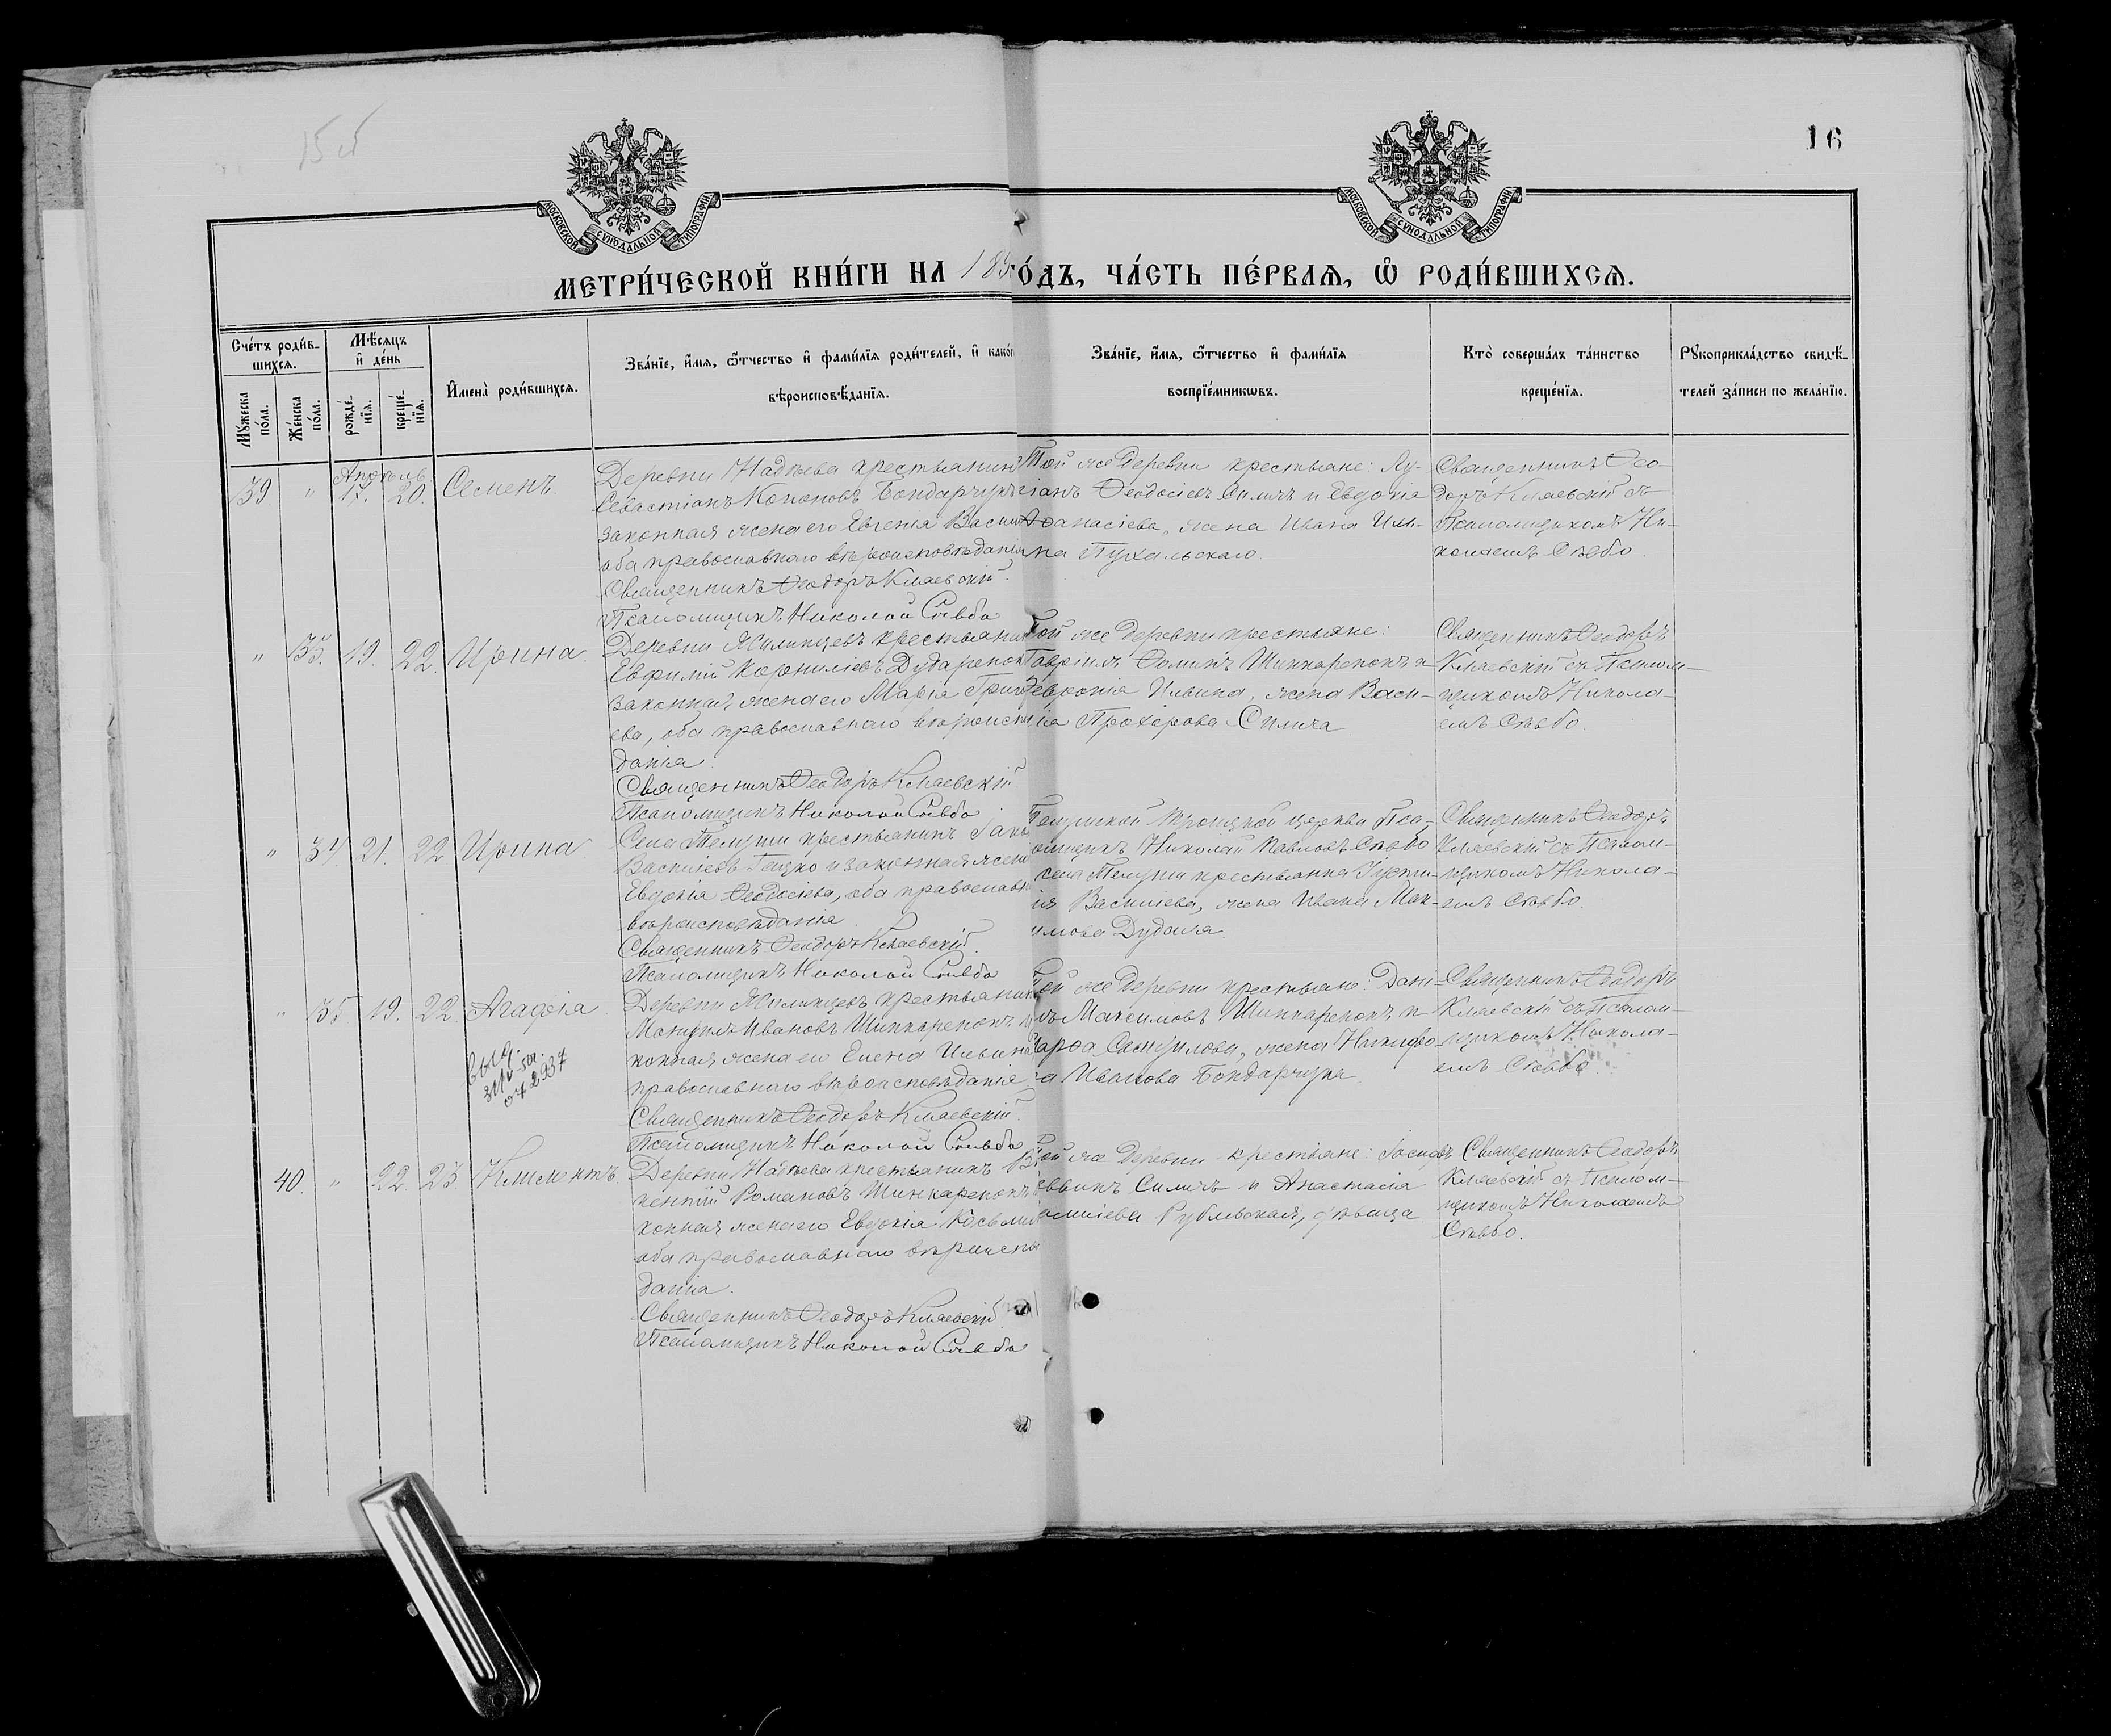 15об
16
МОСКОВСКОЙ СѴНОДАЛЬНОЙ ТИПОГРАФІИ
МОСКОВСКОЙ СѴНОДАЛЬНОЙ ТИПОГРАФІИ
МЕТРИ́ЧЕСКОЙ КНИ́ГИ НА 189
О́ДЪ, ЧА́СТЬ ПЕ́РВАѦ, Ѡ҆ РОДИ́ВШИХСѦ.
Сче́тъ роди́в-
шихся.
Мꙋжеска по́ла.
Же́нска по́ла.
Мѣ́сяцъ
и҆ де́нь
рожде́-
нїѧ.
креще́-
нїѧ.
И҆мена̀ роди́вшихся.
Зва́нїе, и҆́мѧ, ѻ҆́тчество и҆ фами́лїѧ роди́телей, и҆ како́
вѣроисповѣ́данїѧ.
Зва́нїе, и҆́мѧ, ѻ҆́тчество и҆ фами́лїѧ
воспрїе́мникѡвъ.
Кто̀ соверша́лъ та́инство
креще́нїѧ.
Рꙋкоприкла́дство свидѣ́-
телей за́писи по жела́нїю.
Апрѣль
39 " 15. 20. Семенъ
Деревни Надѣева крестьянинъ
Севастіанъ Кононовъ Бондарчукъ
законная жена его Евгенія Васи
оба православнаго вѣроисповѣданія
Священникъ Ѳеодоръ Кляевскій.
Псаломщикъ Николай Сѣвбо
Той же деревни крестьяне: Лу-
кіанъ Ѳеодосіевъ Силичъ и Евдокія
Аѳанасіева, жена Ивана Иль-
на Пухальскаго.
Священникъ Ѳео-
доръ Кляевскій съ
Псаломщикомъ Ни-
колаемъ Сѣвбо.
" 33. 19. 22. Ирина.
Деревни Жилинцевъ крестьянин
Евфимій Корниліевъ Дударенок
законная жена его Марія Григо
ева, оба православнаго вѣроиспо
данія.
Священникъ Ѳеодоръ Кляевскій
Псаломщикъ Николай Сѣвбо
Той же деревни крестьяне:
Гавріилъ Ѳоминъ Шинкаренокъ и
Февронія Ильина, жена Васи-
лія Прохорова Силича
Священникъ Ѳеодоръ
Кляевскій съ Псалом-
щикомъ Никола-
емъ Сѣвбо.
" 34. 21. 22 Ирина
Села Телуши крестьянинъ Іако
Василіевъ Гацко и законная жена
Евдокія Ѳеодосіева, оба православн
вѣроисповѣданія
Священникъ Ѳеодоръ Кляевскій.
Псаломщикъ Николай Сѣвбо
Телушской Троицкой церкви Пса-
ломщикъ Николай Павловъ Сѣвбо
села Телуши крестьянка Іусти-
ія Василіева, жена Ивана Мак-
имова Дудаля.
Священникъ Ѳеодоръ
Кляевскій съ Псалом-
щикомъ Никола-
емъ Сѣвбо.
" 35. 19. 22. Агафія.
Деревни Жилинцевъ крестьянин
Мануилъ Ивановъ Шинкаренокъ
конная жена его Елена Ильина
православнаго вѣроисповѣданія
Священникъ Ѳеодоръ Кляевскій.
Псаломщикъ Николай Сѣвбо
Той же деревни крестьяне: Дані-
лъ Максимовъ Шинкаренокъ и
Марѳа Самуилова, жена Никифо-
ра Иванова Бондарчука.
Священникъ Ѳеодоръ
Кляевскій съ Псалом-
щикомъ Никола-
емъ Сѣвбо.
40. " 22. 23. Климентъ.
Деревни Надѣева крестьянинъ Ви
кентій Романовъ Шинкаренокъ
конная жена его Евдокія Косьмин
оба православнаго вѣроиспо
данія.
Священникъ Ѳеодоръ Кляевскій.
Псаломщикъ Николай Сѣвбо
Той же деревни крестьяне: Іосифъ
Силичъ и Анастасія
Рублевская, дѣвица
Священникъ Ѳеодоръ
Кляевскій съ Псалом-
щикомъ Николаемъ
Сѣвбо.